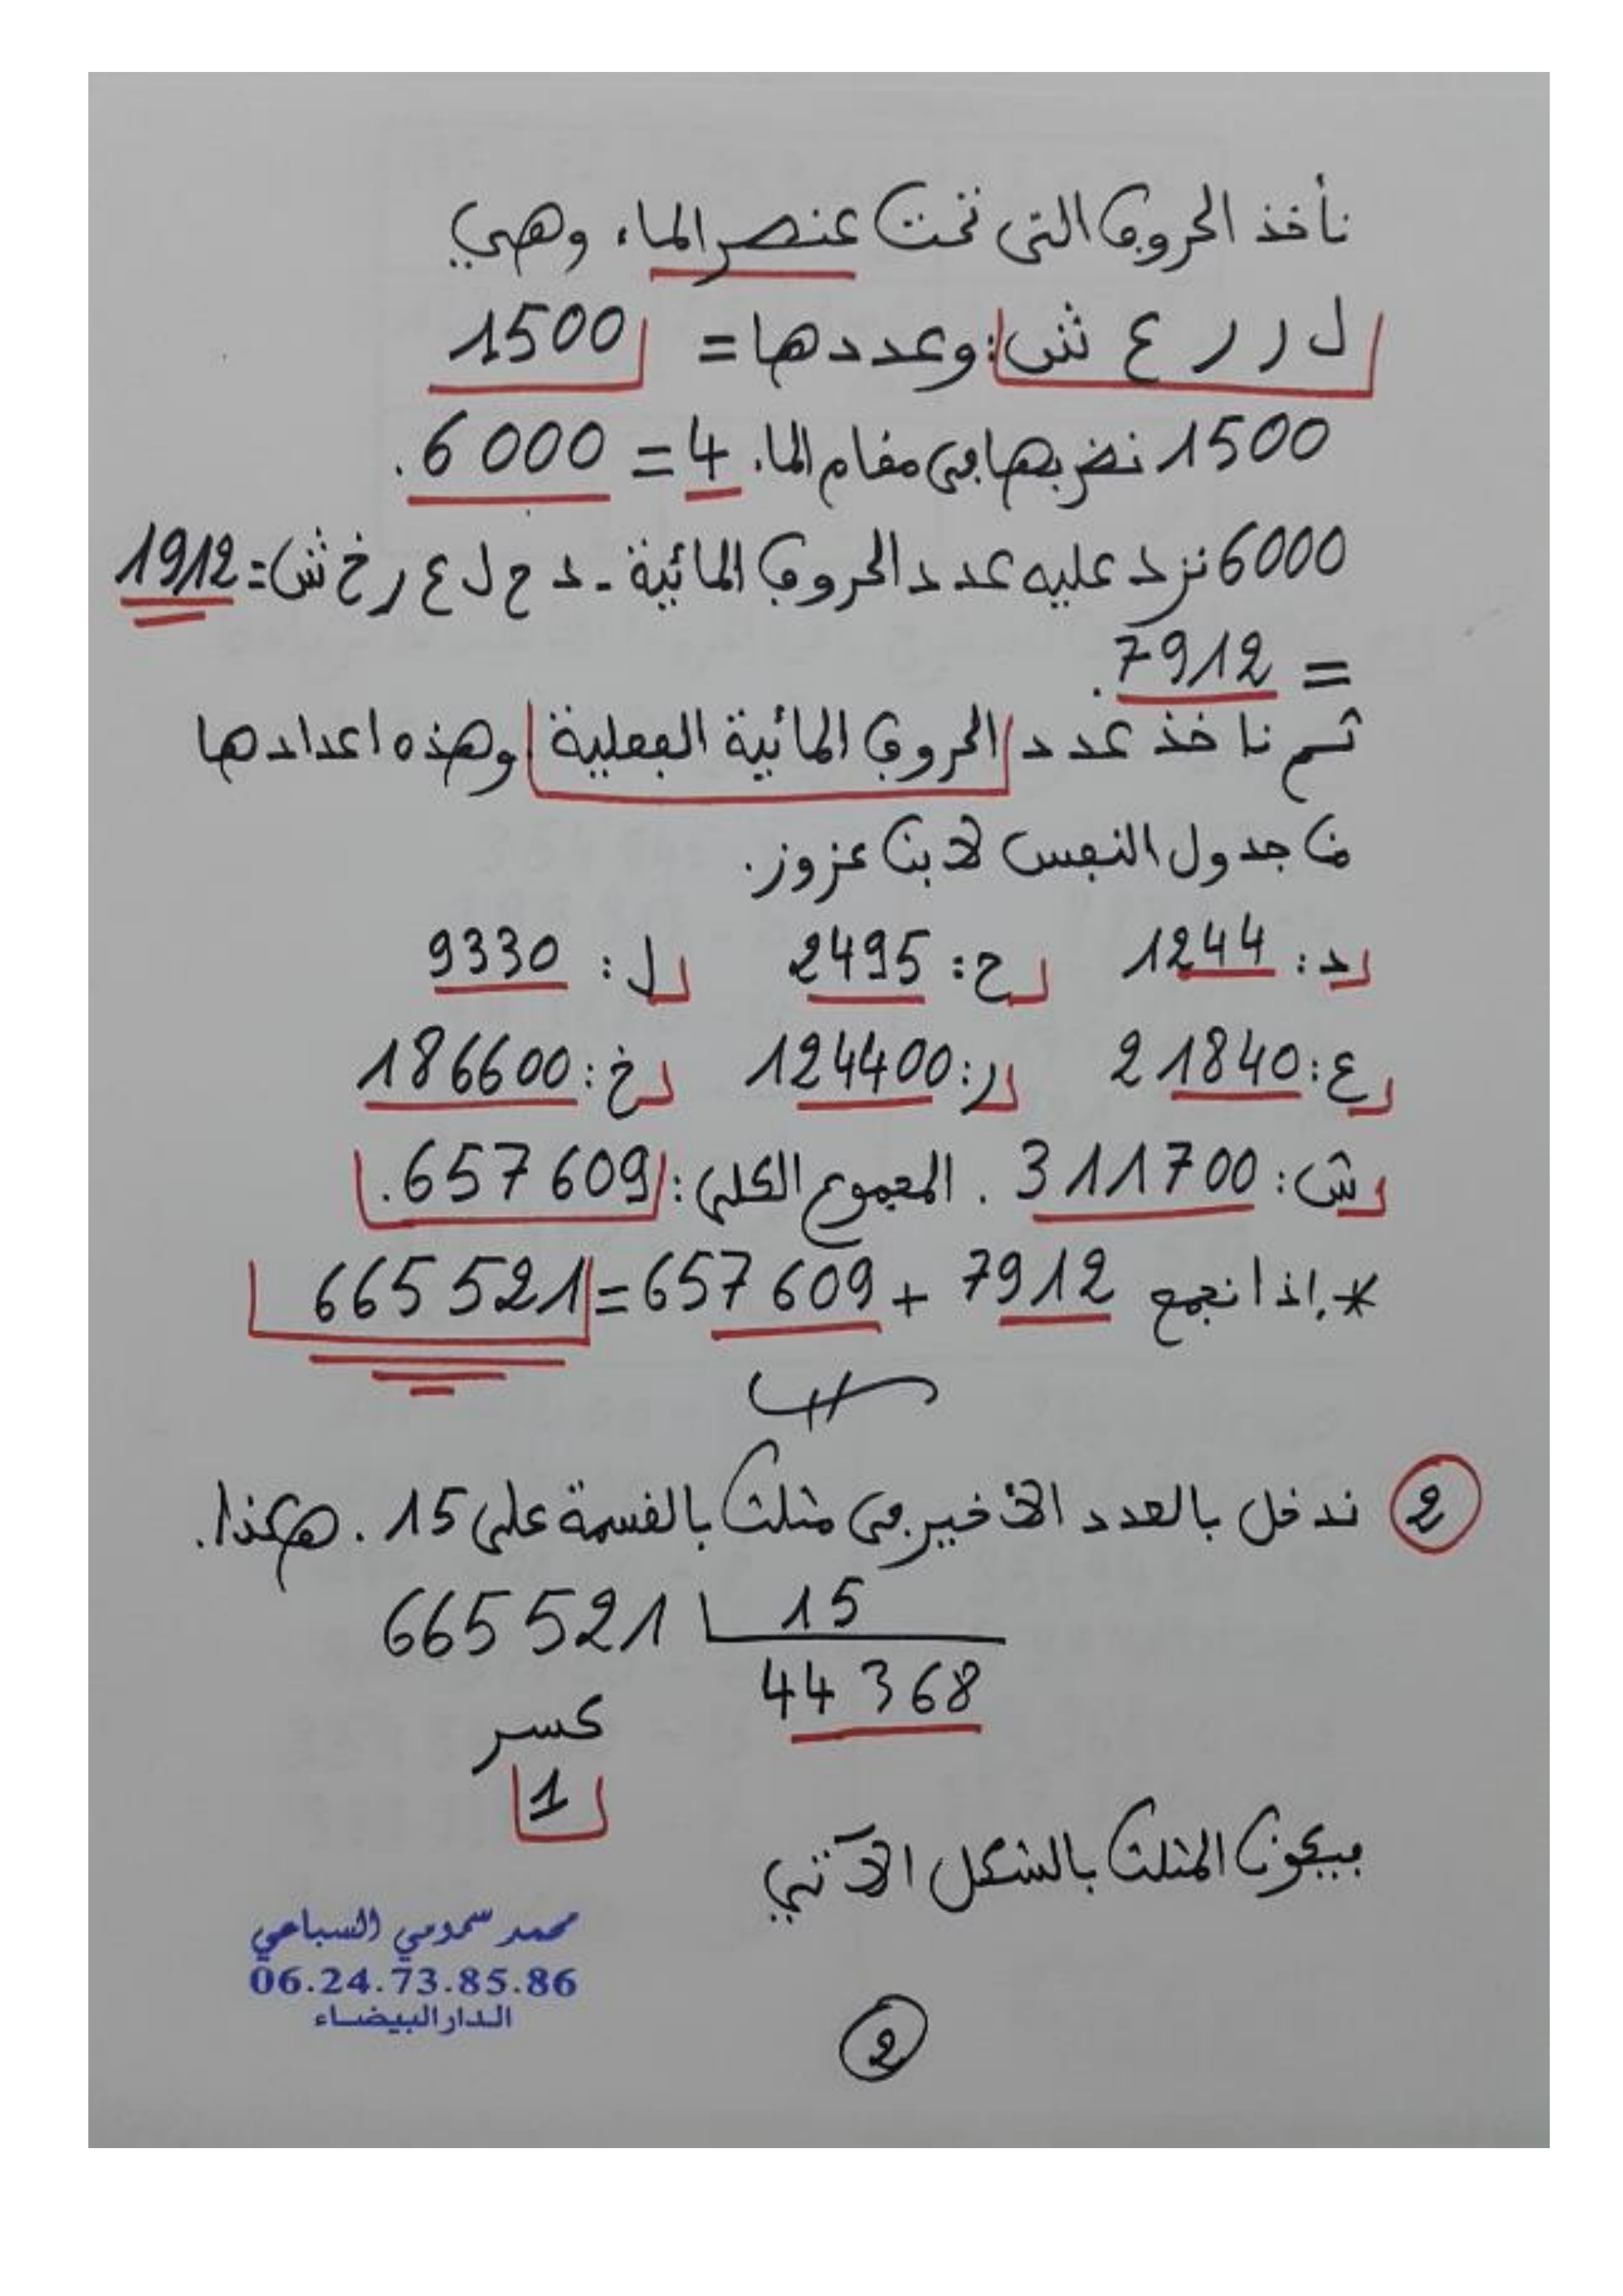 نأخذ الحروف التي تحت عنصر الماء وهي
ل ر ر ع ش: وعددها = 1500
1500 نضربها في مقام الماء 4 = 6000.
6000 نزد عليه عدد الحروف المائية - د ح ل ع ر خ ش = 1912
= 7912.
ثم ناخذ عدد الحروف المائية الفعلية وهذه اعدادها
من جدول النفس لابن عزوز.
د: 1244 ح: 2495 ل: 9330
ع: 21840 ر: 124400 خ: 186600
ش: 311700 . المجموع الكلي: 657609.
*. اذا نجمع 7912 + 657609 = 665521
2 ندخل بالعدد الاخير في مثلث بالقسمة على 15 . هكذا.
665521 15
44368
كسر
1
فيكون المثلث بالشكل الآتي
محمد سمومي السباعي
06.24.73.85.86
الدار البيضاء
2